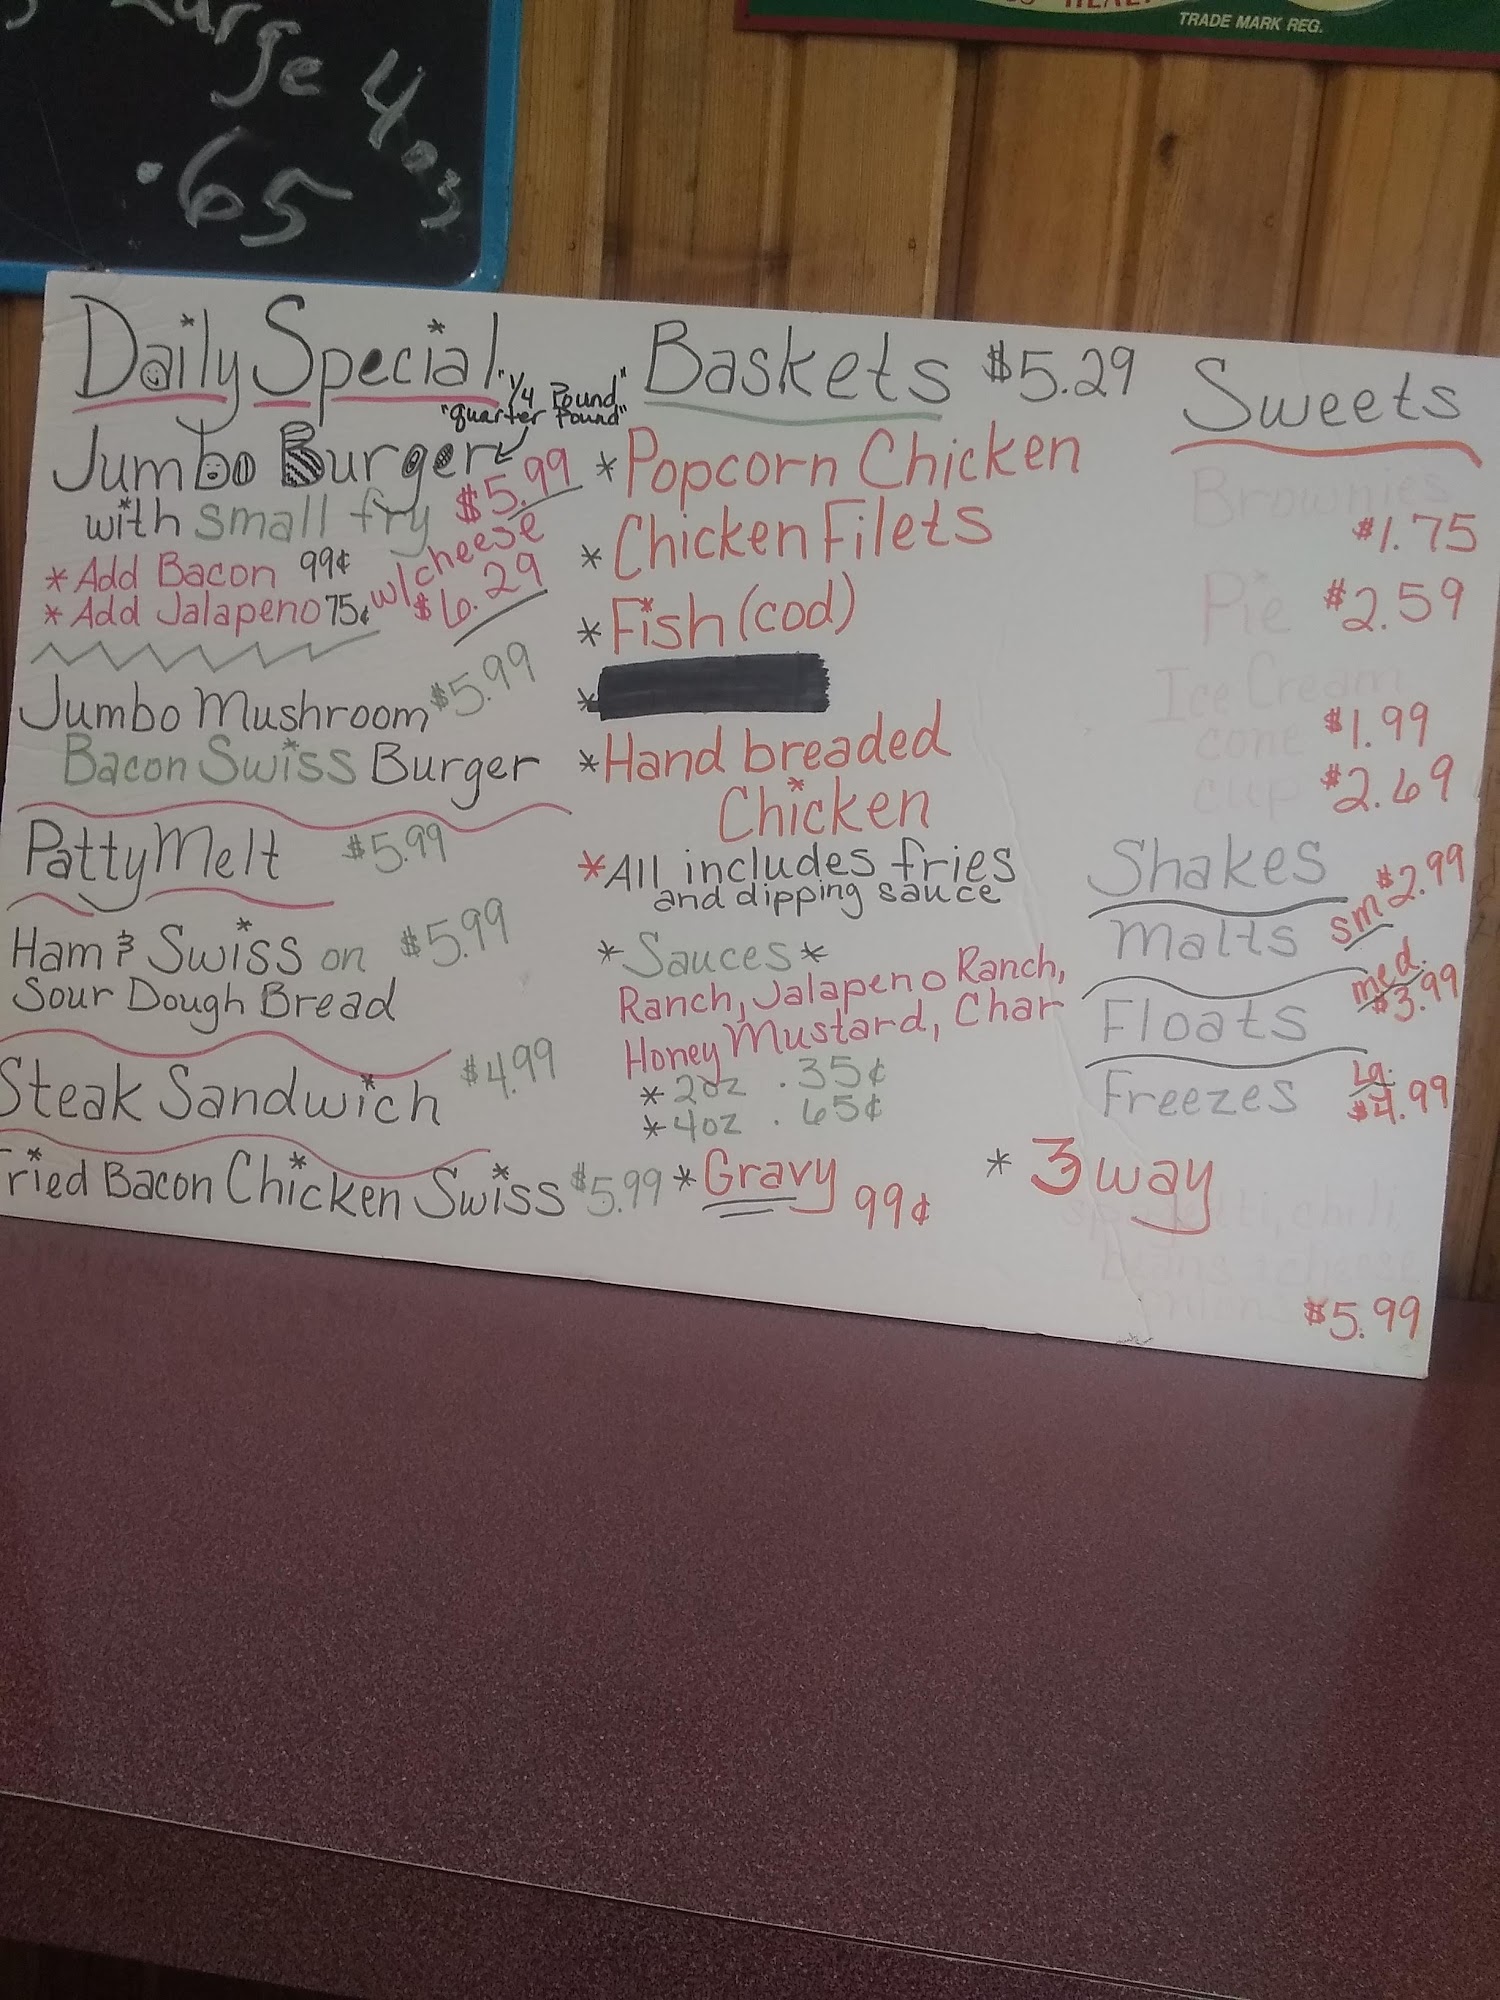 Large 4oz
.65
TRADE MARK REG.
Daily Special
"1/4 Pound"
"quarter Pound"
Jumbo Burger
with small fry $5.99
* Add Bacon 99¢
* Add Jalapeno 75¢
w/cheese
$6.29
Jumbo Mushroom $5.99
Bacon Swiss Burger
Patty Melt $5.99
Ham & Swiss on $5.99
Sour Dough Bread
Steak Sandwich $4.99
Fried Bacon Chicken Swiss $5.99
Baskets $5.29
* Popcorn Chicken
* Chicken Filets
* Fish (cod)
*
* Hand breaded
Chicken
* All includes fries
and dipping sauce
* Sauces *
Ranch, Jalapeno Ranch,
Honey Mustard, Char
* 2oz .35¢
* 4oz .65¢
* Gravy 99¢
Sweets
Brownies
$1.75
Pie $2.59
Ice Cream
cone $1.99
cup $2.69
Shakes
Malts
Floats
Freezes
sm $2.99
med. $3.99
Lg. $4.99
* 3 way
spaghetti, chili,
beans + cheese
$5.99